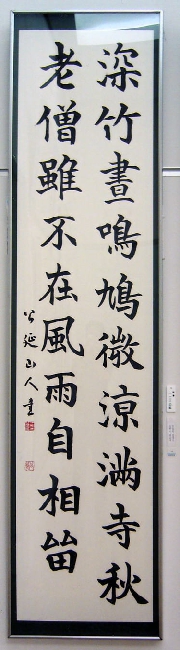 深竹晝鳴鳩微涼満寺秋
老僧雖不在風雨自相畄
延山人書